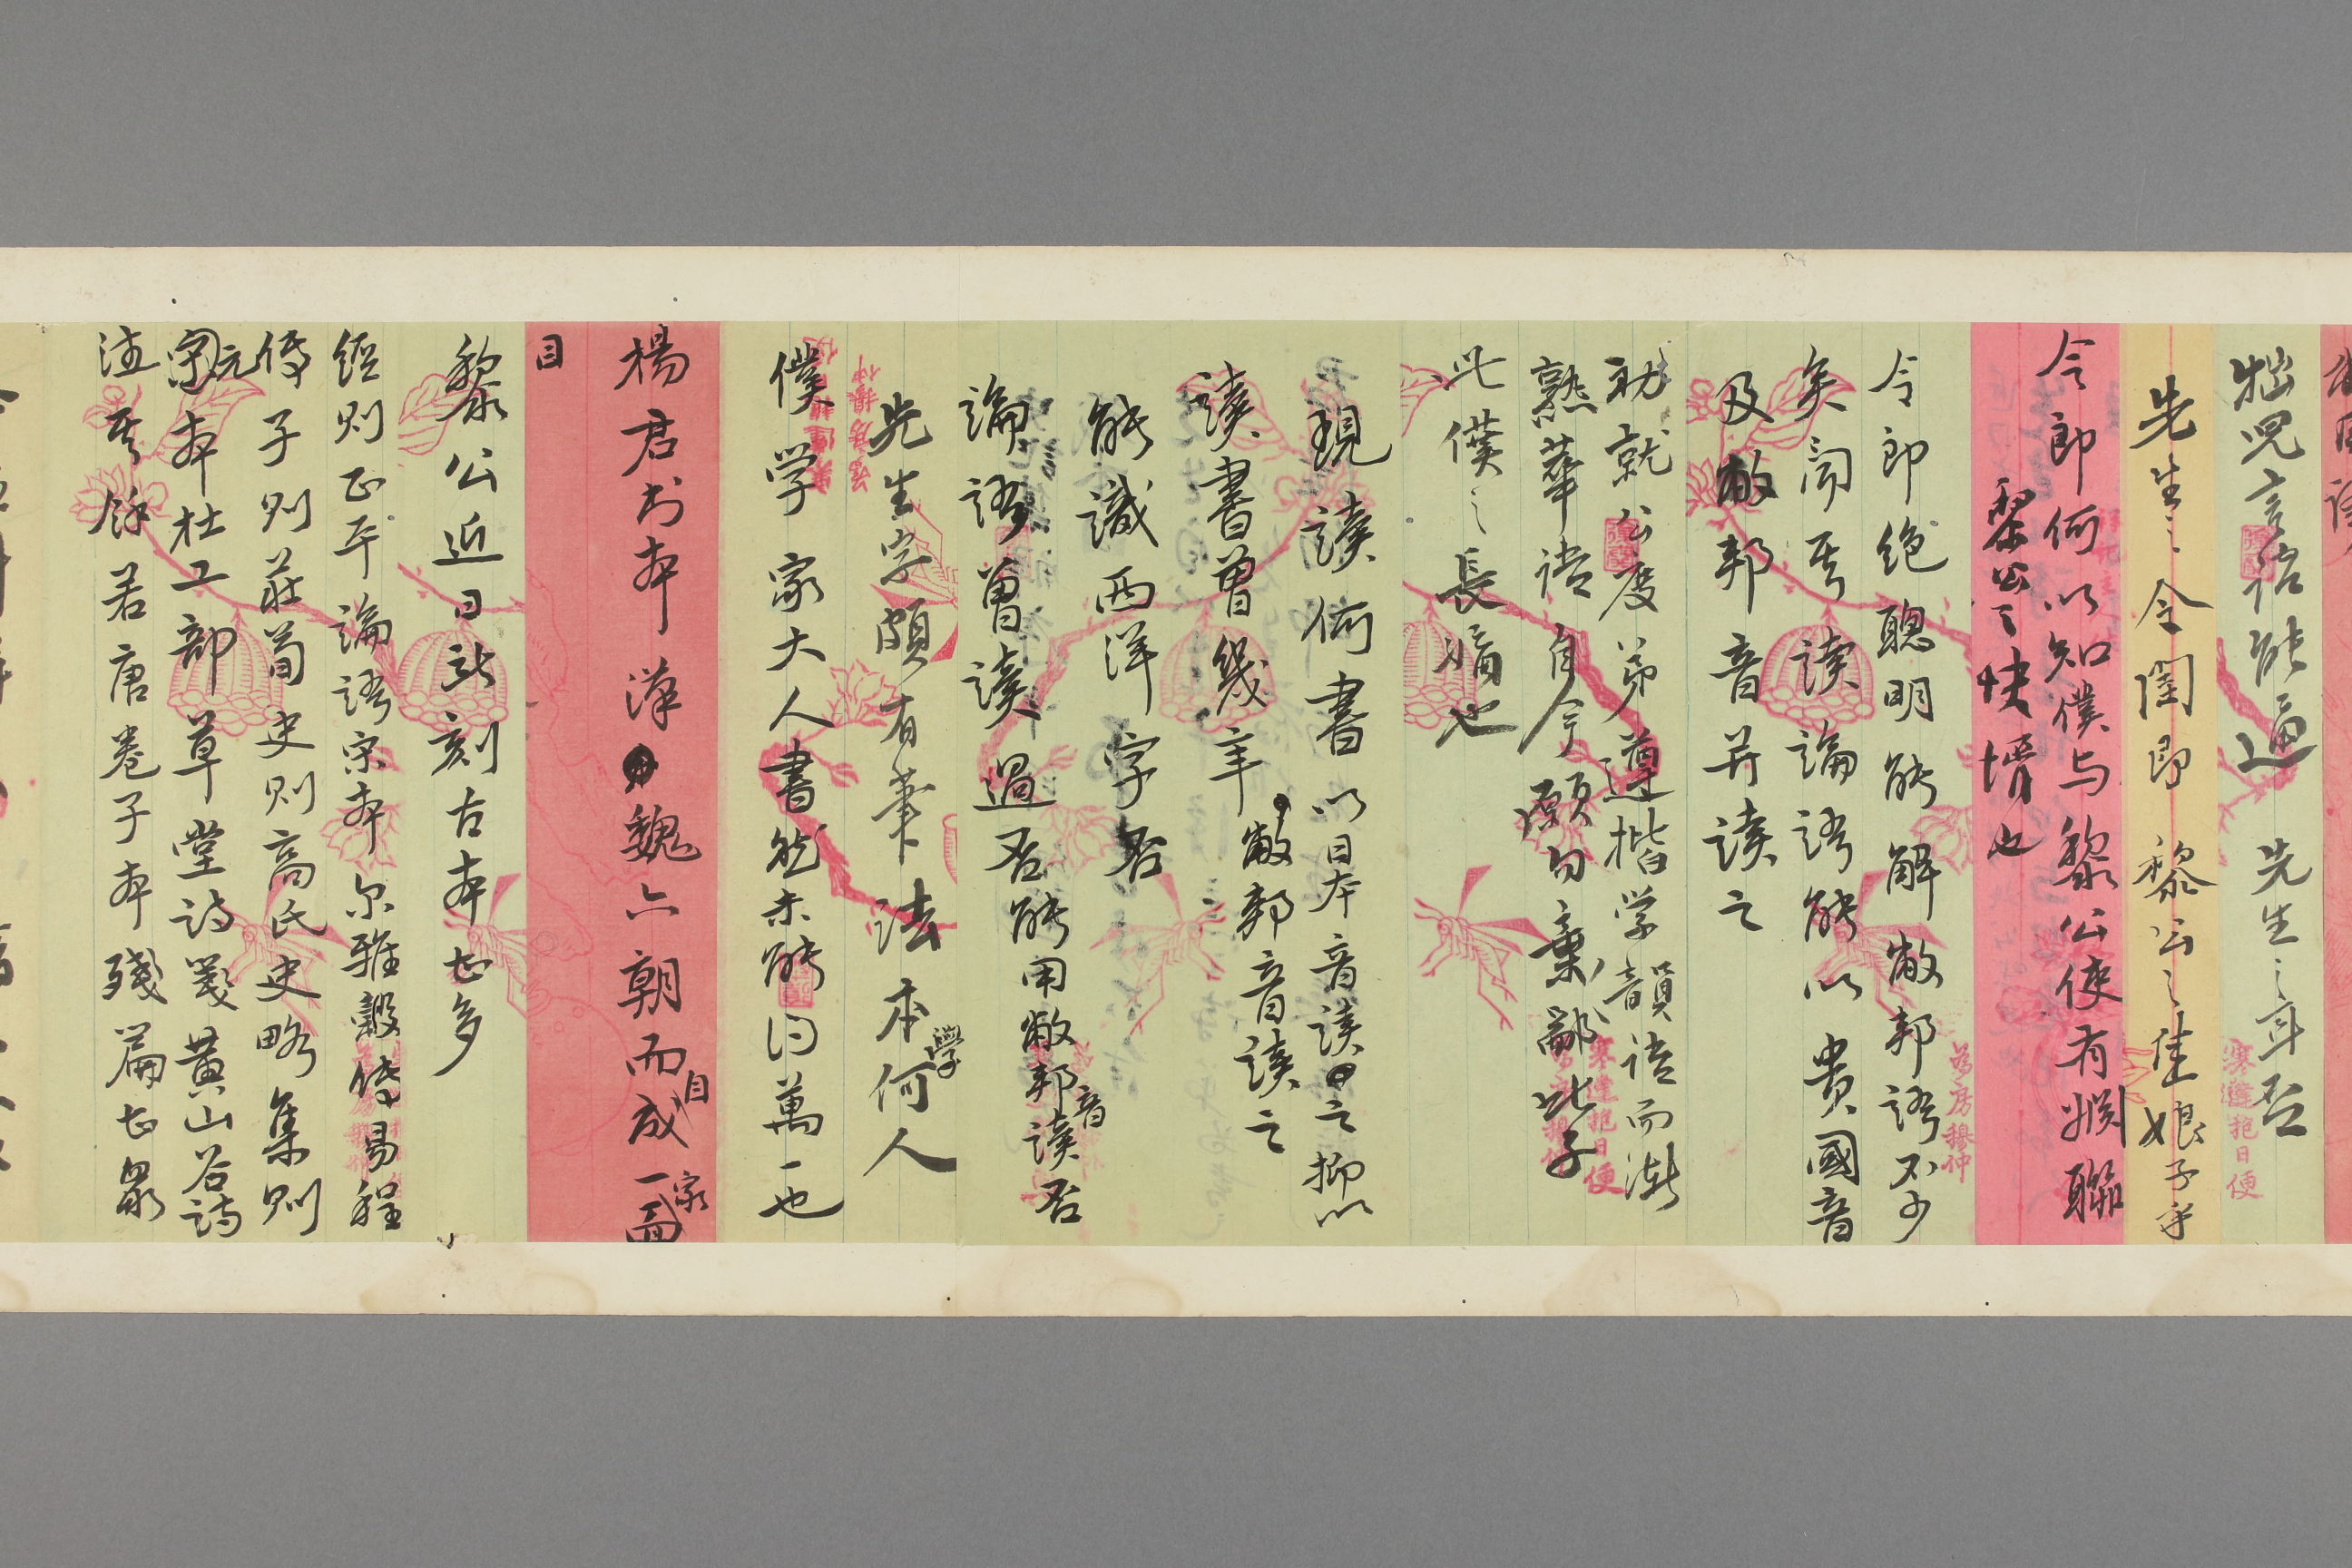 拙児言語能通 先生之耳否
先生之令閨即黎公之佳娘子乎
令郎何以知僕与黎公使有姻聯
黎公之快壻也
令郎絶聰明能解敝邦語不少
矣聞其讀論語能以貴國音
及敝邦音并讀之
初就公度弟遵楷学韻語而漸
熟華語自今願勿棄鄙此子
此僕之長嫡也
現讀何書以日本音讀之抑以
敝邦音讀之
讀書曽幾年
能識西洋字否
論語曽讀過否能用敝邦音讀否
先生字頗有筆法本學何人
僕学家大人書然未能得萬一也
楊君書本漢魏六朝而成自一家
面目
黎公近日所刻古本甚多
經則正平論語宋本尔雅穀傳易程
傳子則荘荀史則髙氏史略集則
元宗本杜工部草堂詩箋黄山谷詩
注其餘若唐巻子本殘篇甚最